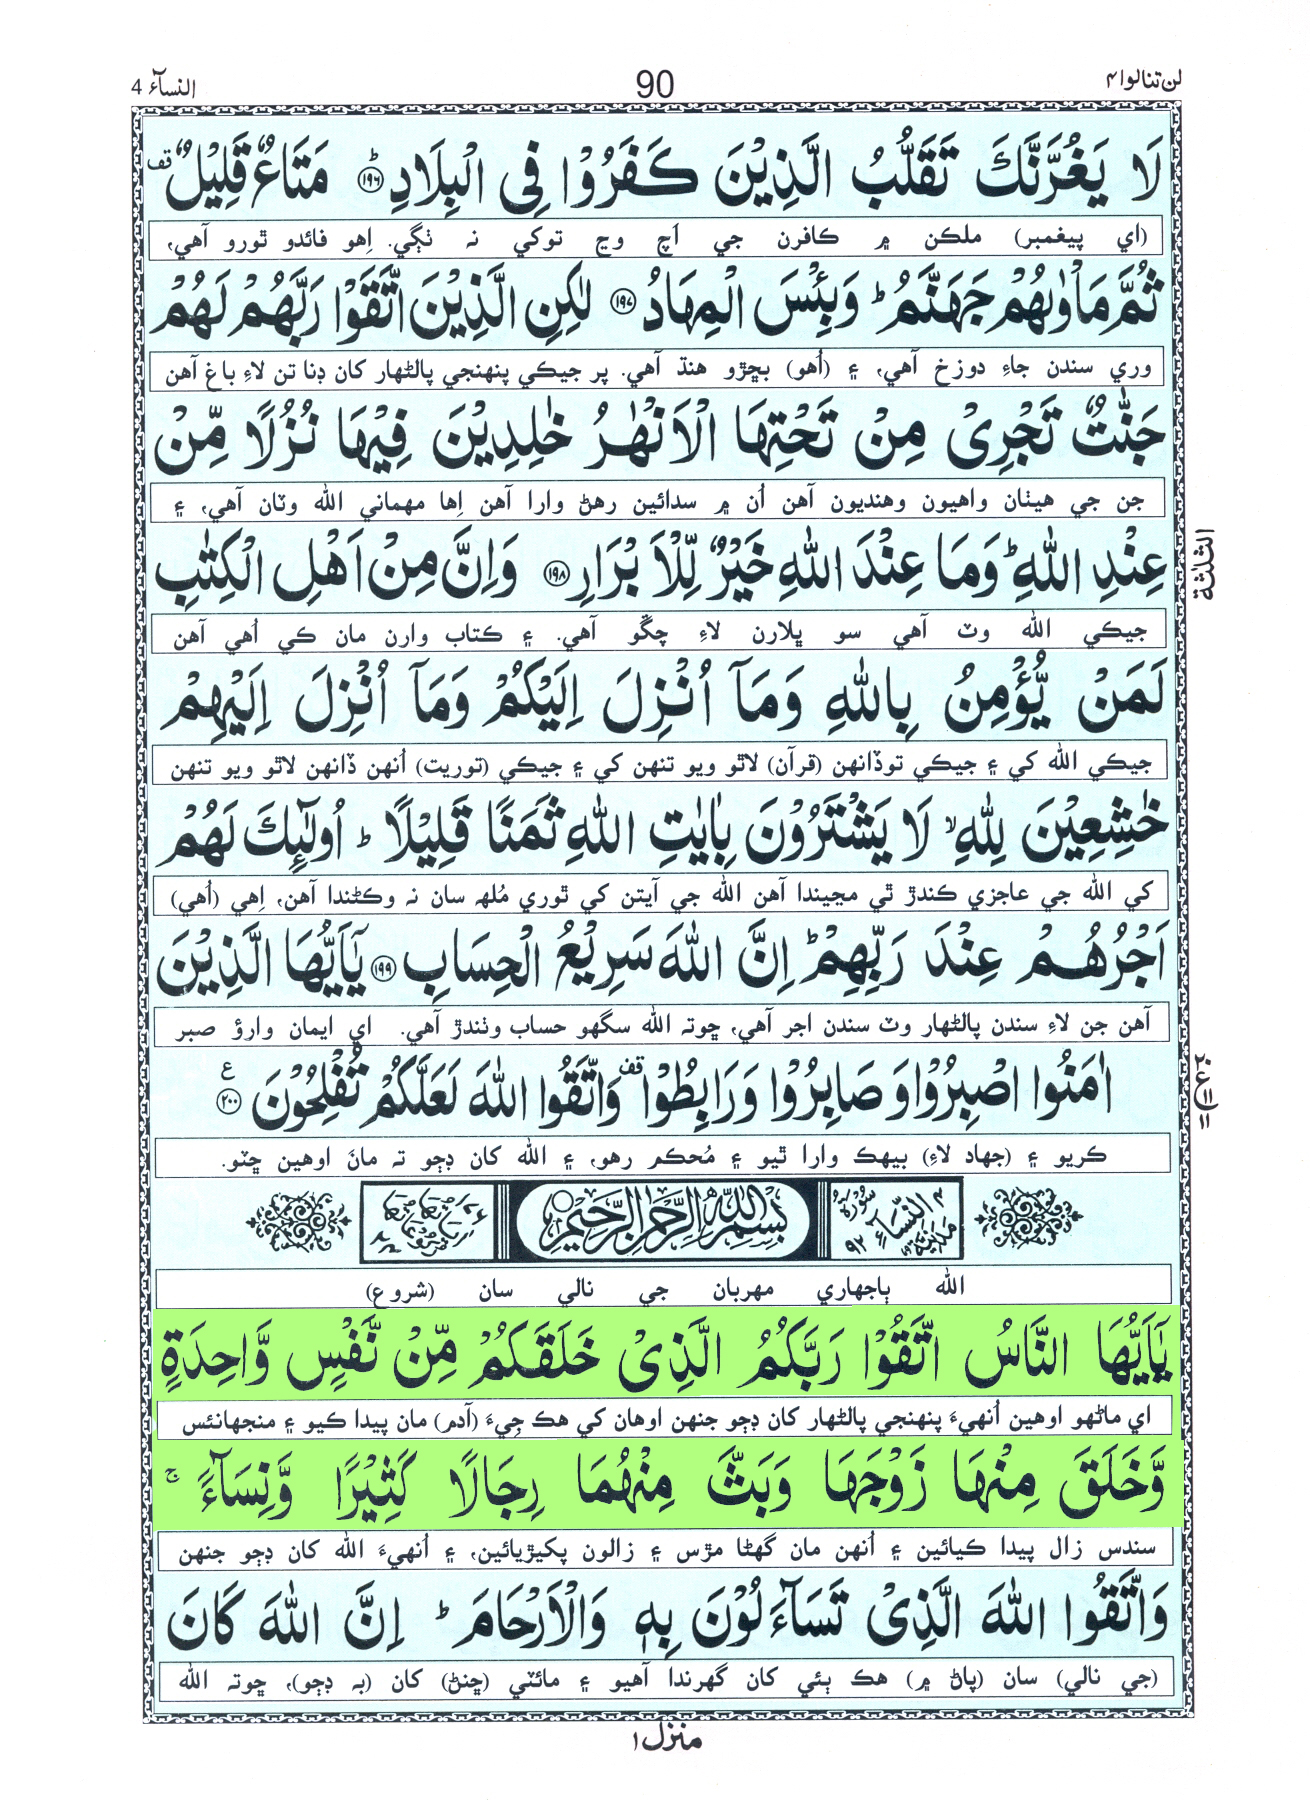 لن تنالوا ٤
90
النسآء 4
لَا يَغُرَّنَّكَ تَقَلُّبُ الَّذِيْنَ كَفَرُوْا فِى الْبِلَادِ ؕ ﴿۱۹۶﴾ مَتَاعٌ قَلِيْلٌ قف
(اي پيغمبر) ملڪن ۾ ڪافرن جي اَچ وڃ توکي نہ ٺڳي. اِهو فائدو ٿورو آهي،
ثُمَّ مَاْوٰىهُمْ جَهَنَّمُ ؕ وَبِئْسَ الْمِهَادُ ﴿۱۹۷﴾ لٰكِنِ الَّذِيْنَ اتَّقَوْا رَبَّهُمْ لَهُمْ
وري سندن جاءِ دوزخ آهي، ۽ (اُهو) بڇڙو هنڌ آهي. پر جيڪي پنهنجي پالڻهار کان ڊنا تن لاءِ باغ آهن
جَنّٰتٌ تَجْرِىْ مِنْ تَحْتِهَا الْاَنْهٰرُ خٰلِدِيْنَ فِيْهَا نُزُلًا مِّنْ
جن جي هيٺان واهيون وهنديون آهن اُن ۾ سدائين رهڻ وارا آهن اِها مهماني الله وٽان آهي، ۽
عِنْدِ اللّٰهِ ؕ وَمَا عِنْدَ اللّٰهِ خَيْرٌ لِّلْاَبْرَارِ ﴿۱۹۸﴾ وَاِنَّ مِنْ اَهْلِ الْكِتٰبِ
جيڪي الله وٽ آهي سو ڀلارن لاءِ چڱو آهي. ۽ ڪتاب وارن مان ڪي اُهي آهن
لَمَنْ يُّؤْمِنُ بِاللّٰهِ وَمَآ اُنْزِلَ اِلَيْكُمْ وَمَآ اُنْزِلَ اِلَيْهِمْ
جيڪي الله کي ۽ جيڪي توڏانهن (قرآن) لاٿو ويو تنهن کي ۽ جيڪي (توريت) اُنهن ڏانهن لاٿو ويو تنهن
خٰشِعِيْنَ لِلّٰهِ ۙ لَا يَشْتَرُوْنَ بِاٰيٰتِ اللّٰهِ ثَمَنًا قَلِيْلًا ؕ اُولٰٓئِكَ لَهُمْ
کي الله جي عاجزي ڪندڙ ٿي مڃيندا آهن الله جي آيتن کي ٿوري مُلھ سان نہ وڪڻندا آهن، اِهي (اُهي)
اَجْرُهُمْ عِنْدَ رَبِّهِمْ ؕ اِنَّ اللّٰهَ سَرِيْعُ الْحِسَابِ ﴿۱۹۹﴾ يٰٓاَيُّهَا الَّذِيْنَ
آهن جن لاءِ سندن پالڻهار وٽ سندن اجر آهي، ڇوتہ الله سگهو حساب وٺندڙ آهي. اي ايمان وارؤ صبر
اٰمَنُوا اصْبِرُوْا وَصَابِرُوْا وَرَابِطُوْا قف وَاتَّقُوا اللّٰهَ لَعَلَّكُمْ تُفْلِحُوْنَ ﴿۲۰۰﴾ ع
ڪريو ۽ (جهاد لاءِ) بيهڪ وارا ٿيو ۽ مُحڪم رهو، ۽ الله کان ڊڄو تہ مانَ اوهين ڇٽو.
سُوْرَةُ النِّسَآءِ مَدَنِيَّةٌ ٤ ٩٢
بِسْمِ اللّٰهِ الرَّحْمٰنِ الرَّحِيْمِ
الله ٻاجهاري مهربان جي نالي سان (شروع)
يٰٓاَيُّهَا النَّاسُ اتَّقُوْا رَبَّكُمُ الَّذِىْ خَلَقَكُمْ مِّنْ نَّفْسٍ وَّاحِدَةٍ
اي ماڻهو اوهين اُنهيءَ پنهنجي پالڻهار کان ڊڄو جنهن اوهان کي هڪ جِيءَ (آدم) مان پيدا ڪيو ۽ منجهانئس
وَّخَلَقَ مِنْهَا زَوْجَهَا وَبَثَّ مِنْهُمَا رِجَالًا كَثِيْرًا وَّنِسَآءً ۚ
سندس زال پيدا ڪيائين ۽ اُنهن مان گهڻا مڙس ۽ زالون پکيڙيائين، ۽ اُنهيءَ الله کان ڊڄو جنهن
وَاتَّقُوا اللّٰهَ الَّذِىْ تَسَآءَلُوْنَ بِهٖ وَالْاَرْحَامَ ؕ اِنَّ اللّٰهَ كَانَ
(جي نالي) سان (پاڻ ۾) هڪ ٻئي کان گهرندا آهيو ۽ مائٽي (ڇنڻ) کان (بہ ڊڄو)، ڇوتہ الله
الثلثة
منزل ١